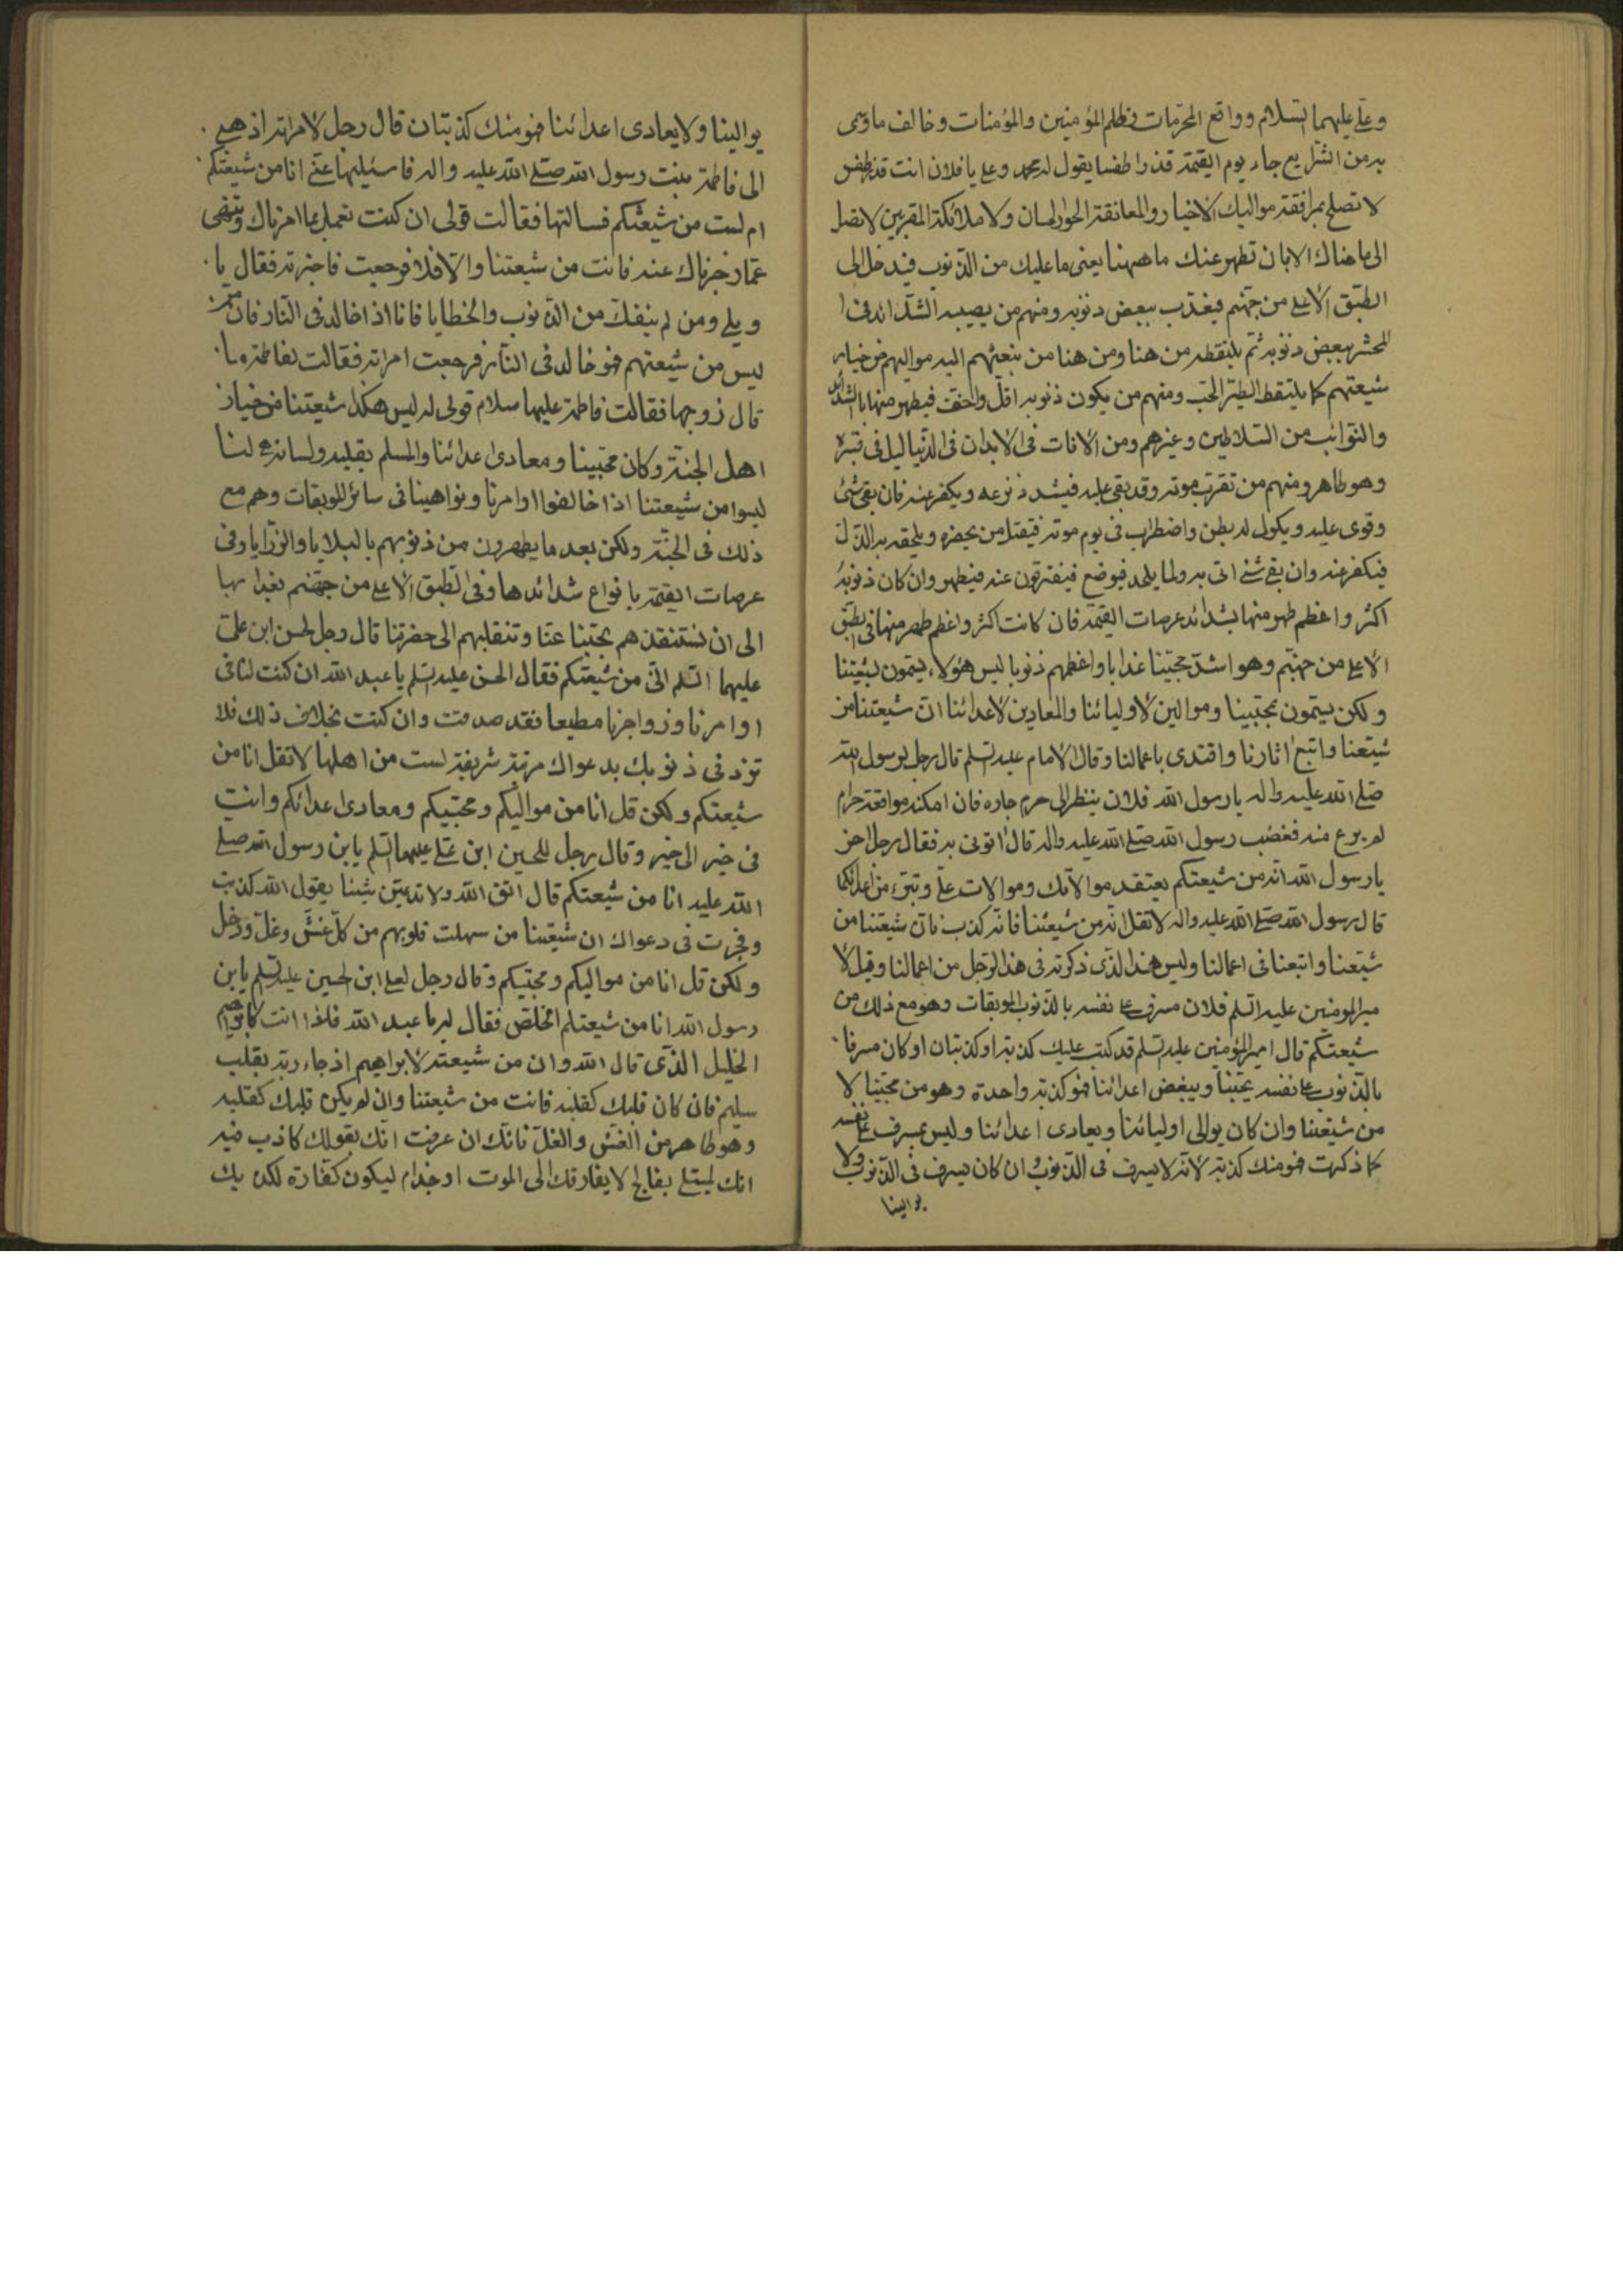 وعلي عليهما السلام وواقع المحرمات وظلم المؤمنين والمؤمنات وخالف ما رسمى
به من الشرايع جاء يوم القيمة قذرا طفسا يقول له محمد وعلي يا فلان انت قذر طفس
لا تصلح بمرافقة مواليك الاخيار والمعانقة الحور الحسان ولا ملائكة المقربين لا تصل
الى ما هناك الا بان تطهر عنك ما ههنا يعنى ما عليك من الذنوب فيدخل الى
الطبق الاعلى من جهنم فيعذب ببعض ذنوبه ومنهم من يصيبه الشدائد فى ا
لمحشر ببعض ذنوبه ثم يلتقطه من هنا ومن هنا من بنعثهم اليه مواليهم من خيار
شيعتهم كما يلتقط الطير الحب ومنهم من يكون ذنوبه اقل واخف فيطهر منها بالشدائد
والنوائب من السلاطين وغيرهم ومن الافات فى الابدان فى الدنيا ليل فى قبره
وهو طاهر ومنهم من تقرب موته وقد بقى عليه فيشد نزعه ويكفر عنه فان بقى شئ
وقوى عليه ويكول له بطن واضطراب فى يوم موته فيقتل من يحضره ويلحقه به الذل
فيكفر عنه وان بقى شئ اتى به ولما يلحد فيوضع فيتفرقون عنه فيطهر وان كان ذنوبه
اكثر واعظم طهر منها بشدائد عرصات القيمة فان كانت اكثر واعظم طهر منها فى الطبق
الاعلى من جهنم وهو اشد محبينا عذابا واعظمهم ذنوبا ليس هؤلاء يسمون بشيعتنا
ولكن يسمون بمحبينا وموالين لاوليائنا والمعادين لاعدائنا ان شيعتنا من
شيعنا واتبع اثارنا واقتدى باعمالنا وقال الامام عليه السلم قال رجل لرسول الله
صلى الله عليه واله يا رسول الله فلان ينظر الى حرم جاره فان امكنه مواقعة حرام
لم يرع منه فغضب رسول الله صلى الله عليه واله قال اتونى به فقال رجل اخر
يا رسول الله انه من شيعتكم يعتقد موالاتك وموالات على وتبرء من اعدائكما
قال رسول الله صلى الله عليه واله لا تقل انه من شيعتنا فانه كذب فان شيعتنا من
شيعنا واتبعنا فى اعمالنا وليس هذا الذى ذكرته فى هذا الرجل من اعمالنا وقيل لا
مير المومنين عليه السلم فلان مسرف على نفسه بالذنوب الموبقات وهو مع ذلك من
شيعتكم قال امير المؤمنين عليه السلم قد كتب عليك كذبة او كذبتان او كان مسرفا
بالذنوب على نفسه يحبنا ويبغض اعدائنا فهو كذبة واحدة وهو من محبينا لا
من شيعتنا وان كان يوالى اوليائنا ويعادى اعدائنا وليس بمسرف على نفسه
كما ذكرت فهو منك كذبة لانه لا يسرف فى الذنوب وان كان يسرف فى الذنوب ولا
يوالينا
يوالينا ولا يعادى اعدائنا فهو منك كذبتان قال رجل لامراته اذهبى
الى فاطمة بنت رسول الله صلى الله عليه واله فاسئليها عنى انا من شيعتكم
ام لست من شيعتكم فسالتها فقالت قولى ان كنت تعمل بما امرناك وتنتهى
عما زجرناك عنه فانت من شيعتنا والا فلا فرجعت فاخبرته فقال يا
ويلى ومن لم ينفك من الذنوب والخطايا فانا اذا خالد فى النار فان من
ليس من شيعتهم فهو خالد فى النار فرجعت امراته فقالت لفاطمة ما
قال زوجها فقالت فاطمة عليها سلام قولى له ليس هكذا شيعتنا من خيار
اهل الجنة وكان محبينا ومعادى اعدائنا والمسلم بقلبه ولسانه لنا
ليسوا من شيعتنا اذا خالفوا اوامرنا ونواهينا فى سائر الموبقات وهم مع
ذلك فى الجنة ولكن بعد ما يطهرون من ذنوبهم بالبلايا والرزايا وفى
عرصات القيمة بانواع شدائدها وفى الطبق الاعلى من جهنم بعذابها
الى ان نستنقذهم بحبنا عنا وتنقلبهم الى حضرتنا قال رجل لحسن ابن على
عليهما السلم انى من شيعتكم فقال الحسن عليه السلم يا عبد الله ان كنت لنا فى
اوامرنا وزواجرنا مطيعا فقد صدقت وان كنت بخلاف ذلك فلا
تزد فى ذنوبك بدعواك مرتبة شريفة لست من اهلها لا تقل انا من
شيعتكم ولكن قل انا من مواليكم ومحبيكم ومعادى اعدائكم وانت
فى خير الى خير وقال رجل للحسين ابن على عليهما السلم يابن رسول الله صلى
الله عليه انا من شيعتكم قال اتق الله ولا تدعين شيئا يقول الله كذبت
وفجرت فى دعواك ان شيعتنا من سهلت قلوبهم من كل غش وغل ودخل
ولكن قل انا من مواليكم ومحبيكم وقال رجل لعلى ابن الحسين عليه السلم يابن
رسول الله انا من شيعتكم المخلص فقال له يا عبد الله فاذا انت كابراهيم
الخليل الذى قال الله وان من شيعته لابراهيم اذ جاء ربه بقلب
سليم فان كان قلبك كقلبه فانت من شيعتنا وان لم يكن قلبك كقلبه
وهو طاهر من الغش والغل فانك ان عرفت انك بقولك كاذب فيه
انك لمبتلى بفالج لا يفارقك الى الموت او جذام ليكون كفارة لكذبك